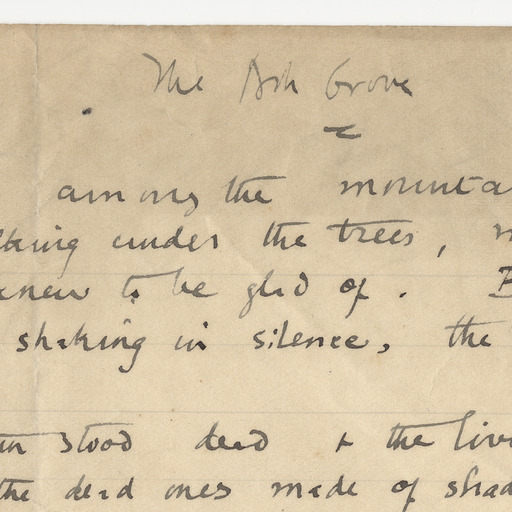 The Ash Grove
among the mounta
lking under the trees,
knew to be glad of.
shaking in silence, the
stood dead & the livi
the dead ones made of shad